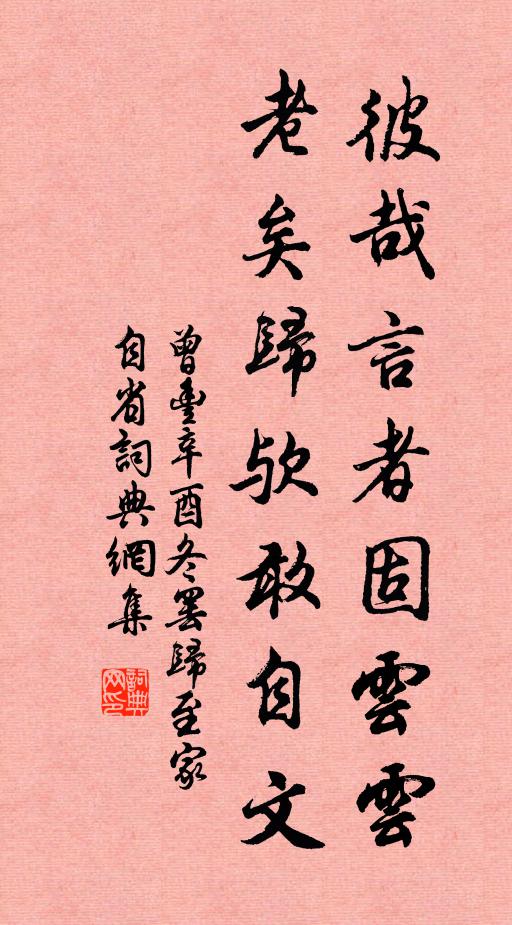 彼哉言者固雲雲
老矣歸歟敢自文
曾豐辛酉冬罢歸至家
自省詞典網集
詞典网印